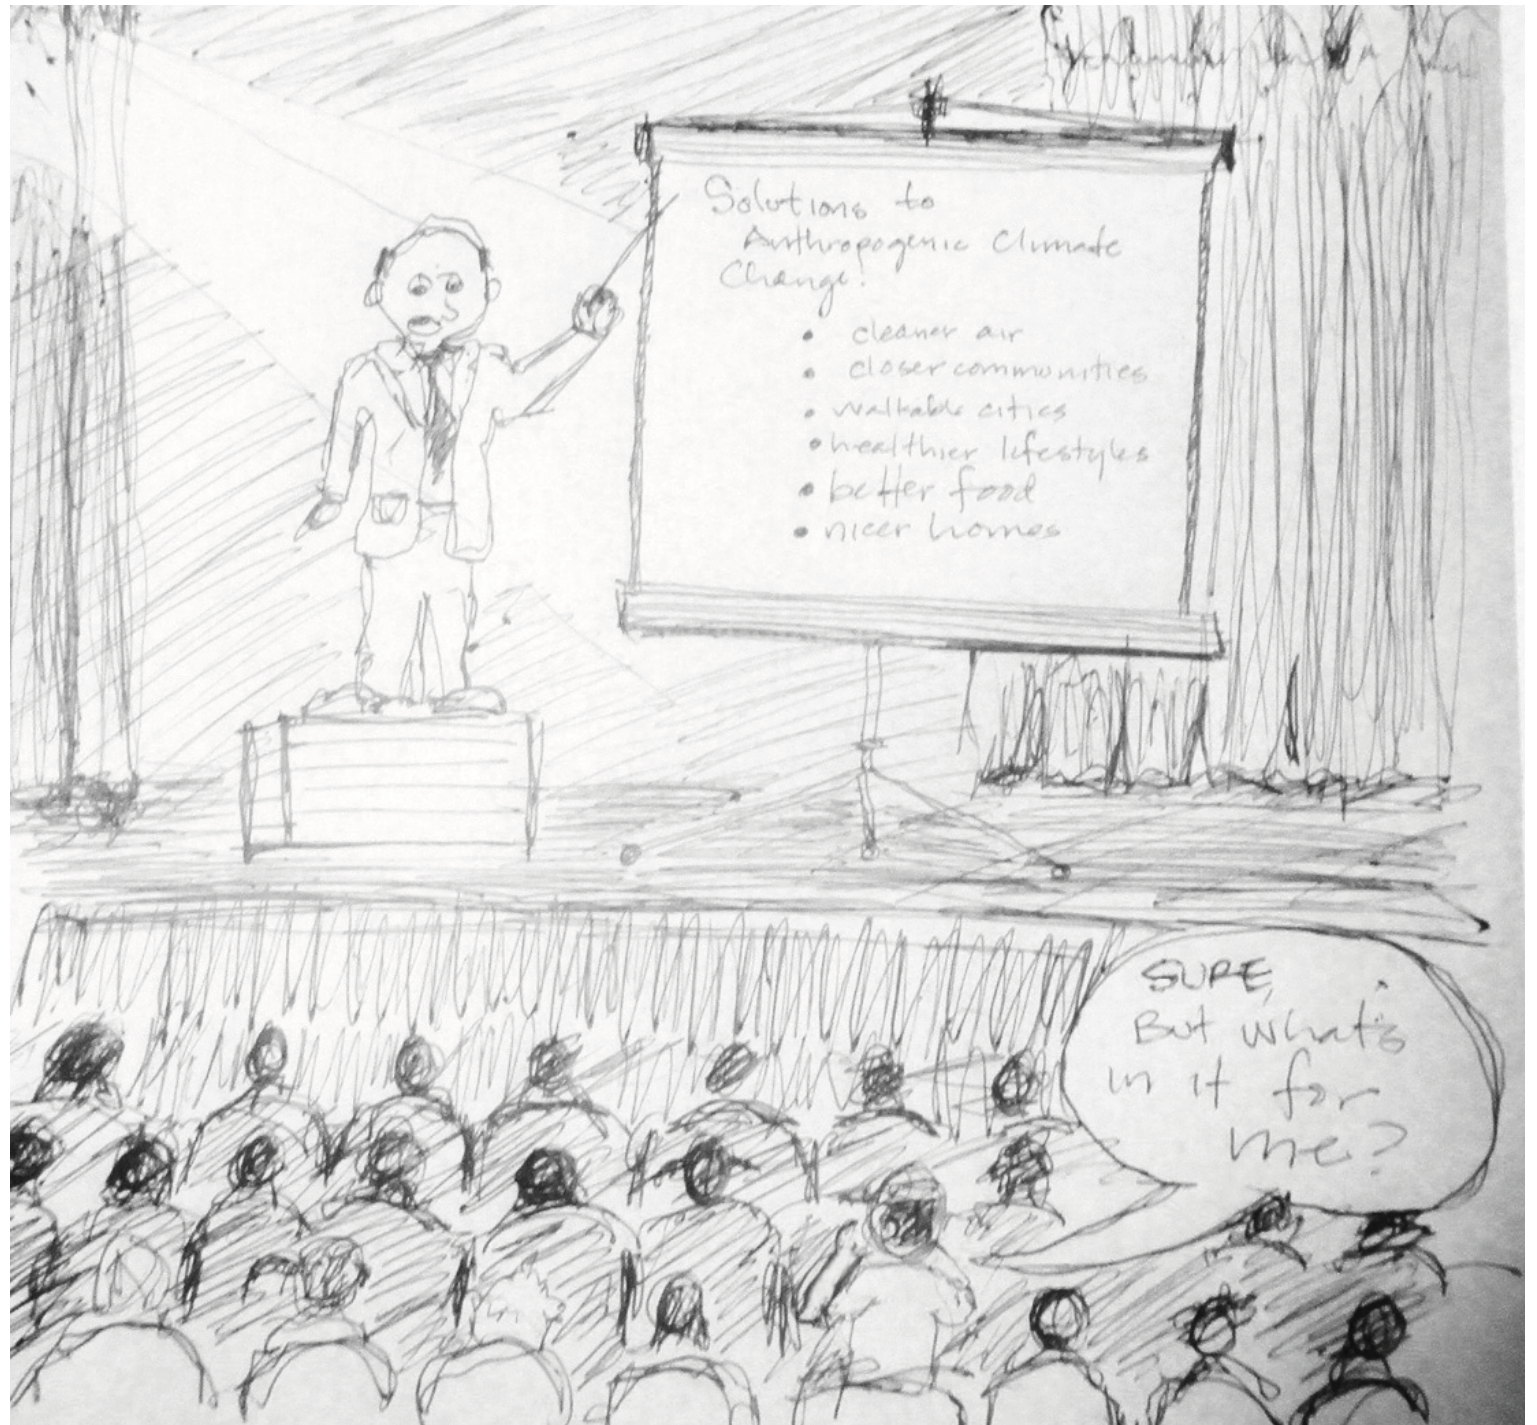 Solutions to
Anthropogenic Climate
Change!
• cleaner air
• closer communities
• walkable cities
• healthier lifestyles
• better food
• nicer homes
SURE,
But what's
in it for
me?